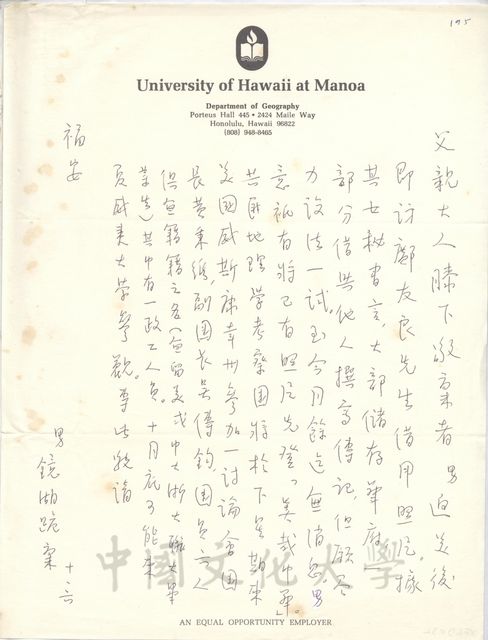 195
University of Hawaii at Manoa
Department of Geography
Porteus Hall 445 • 2424 Maile Way
Honolulu, Hawaii 96822
(808) 948-8465
父親大人膝下敬稟者 男返美後
即訪鄺友良先生借用照片。據
其女秘書言,大部儲存華府,
部分借與他人撰寫傳記,但願尽
力設法一試。至今月餘迄無消息,男
意祇有將已有照片先登「美哉中華」。
共匪地理學考察團將於下星期來
美國威斯康辛州參加一討論會。團
長黃秉維,副團長吳傳鈞,團員六人
俱無籍籍之名(無留美或中大浙大聯大畢
業生)其中有一政工人員。十月底可能來
夏威夷大學參觀。專此敬請
福安
男
鏡湖跪稟
十.六
中國文化大學
AN EQUAL OPPORTUNITY EMPLOYER